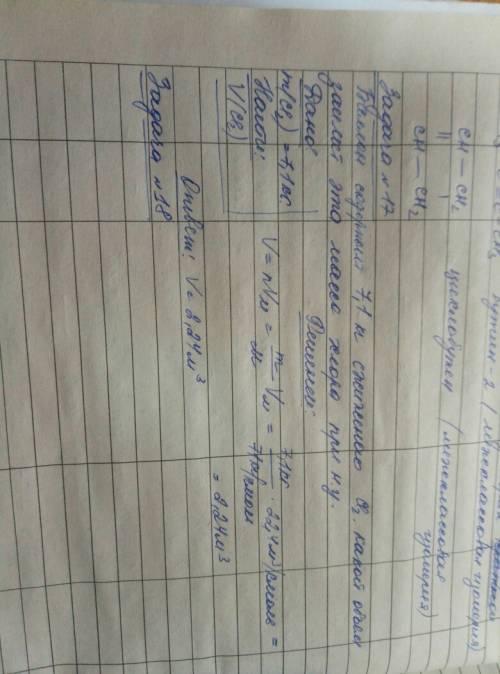 бутин-2 (межклассовая изомерия)
CH — CH₂
||      |      циклобутен (межклассовая
CH — CH₂      изомерия)
Задача №17
Баллон содержит 7,1 кг сжиженного Cl₂. какой объем
займет эта масса хлора при н.у.
Дано:      Решение:
m(Cl₂) = 7,1 кг
Найти:      V = nVм = m/M Vм = 7,1кг/71кг/кмоль · 22,4м³/кмоль =
V(Cl₂)      = 2,24м³
Ответ: V = 2,24м³
Задача №18